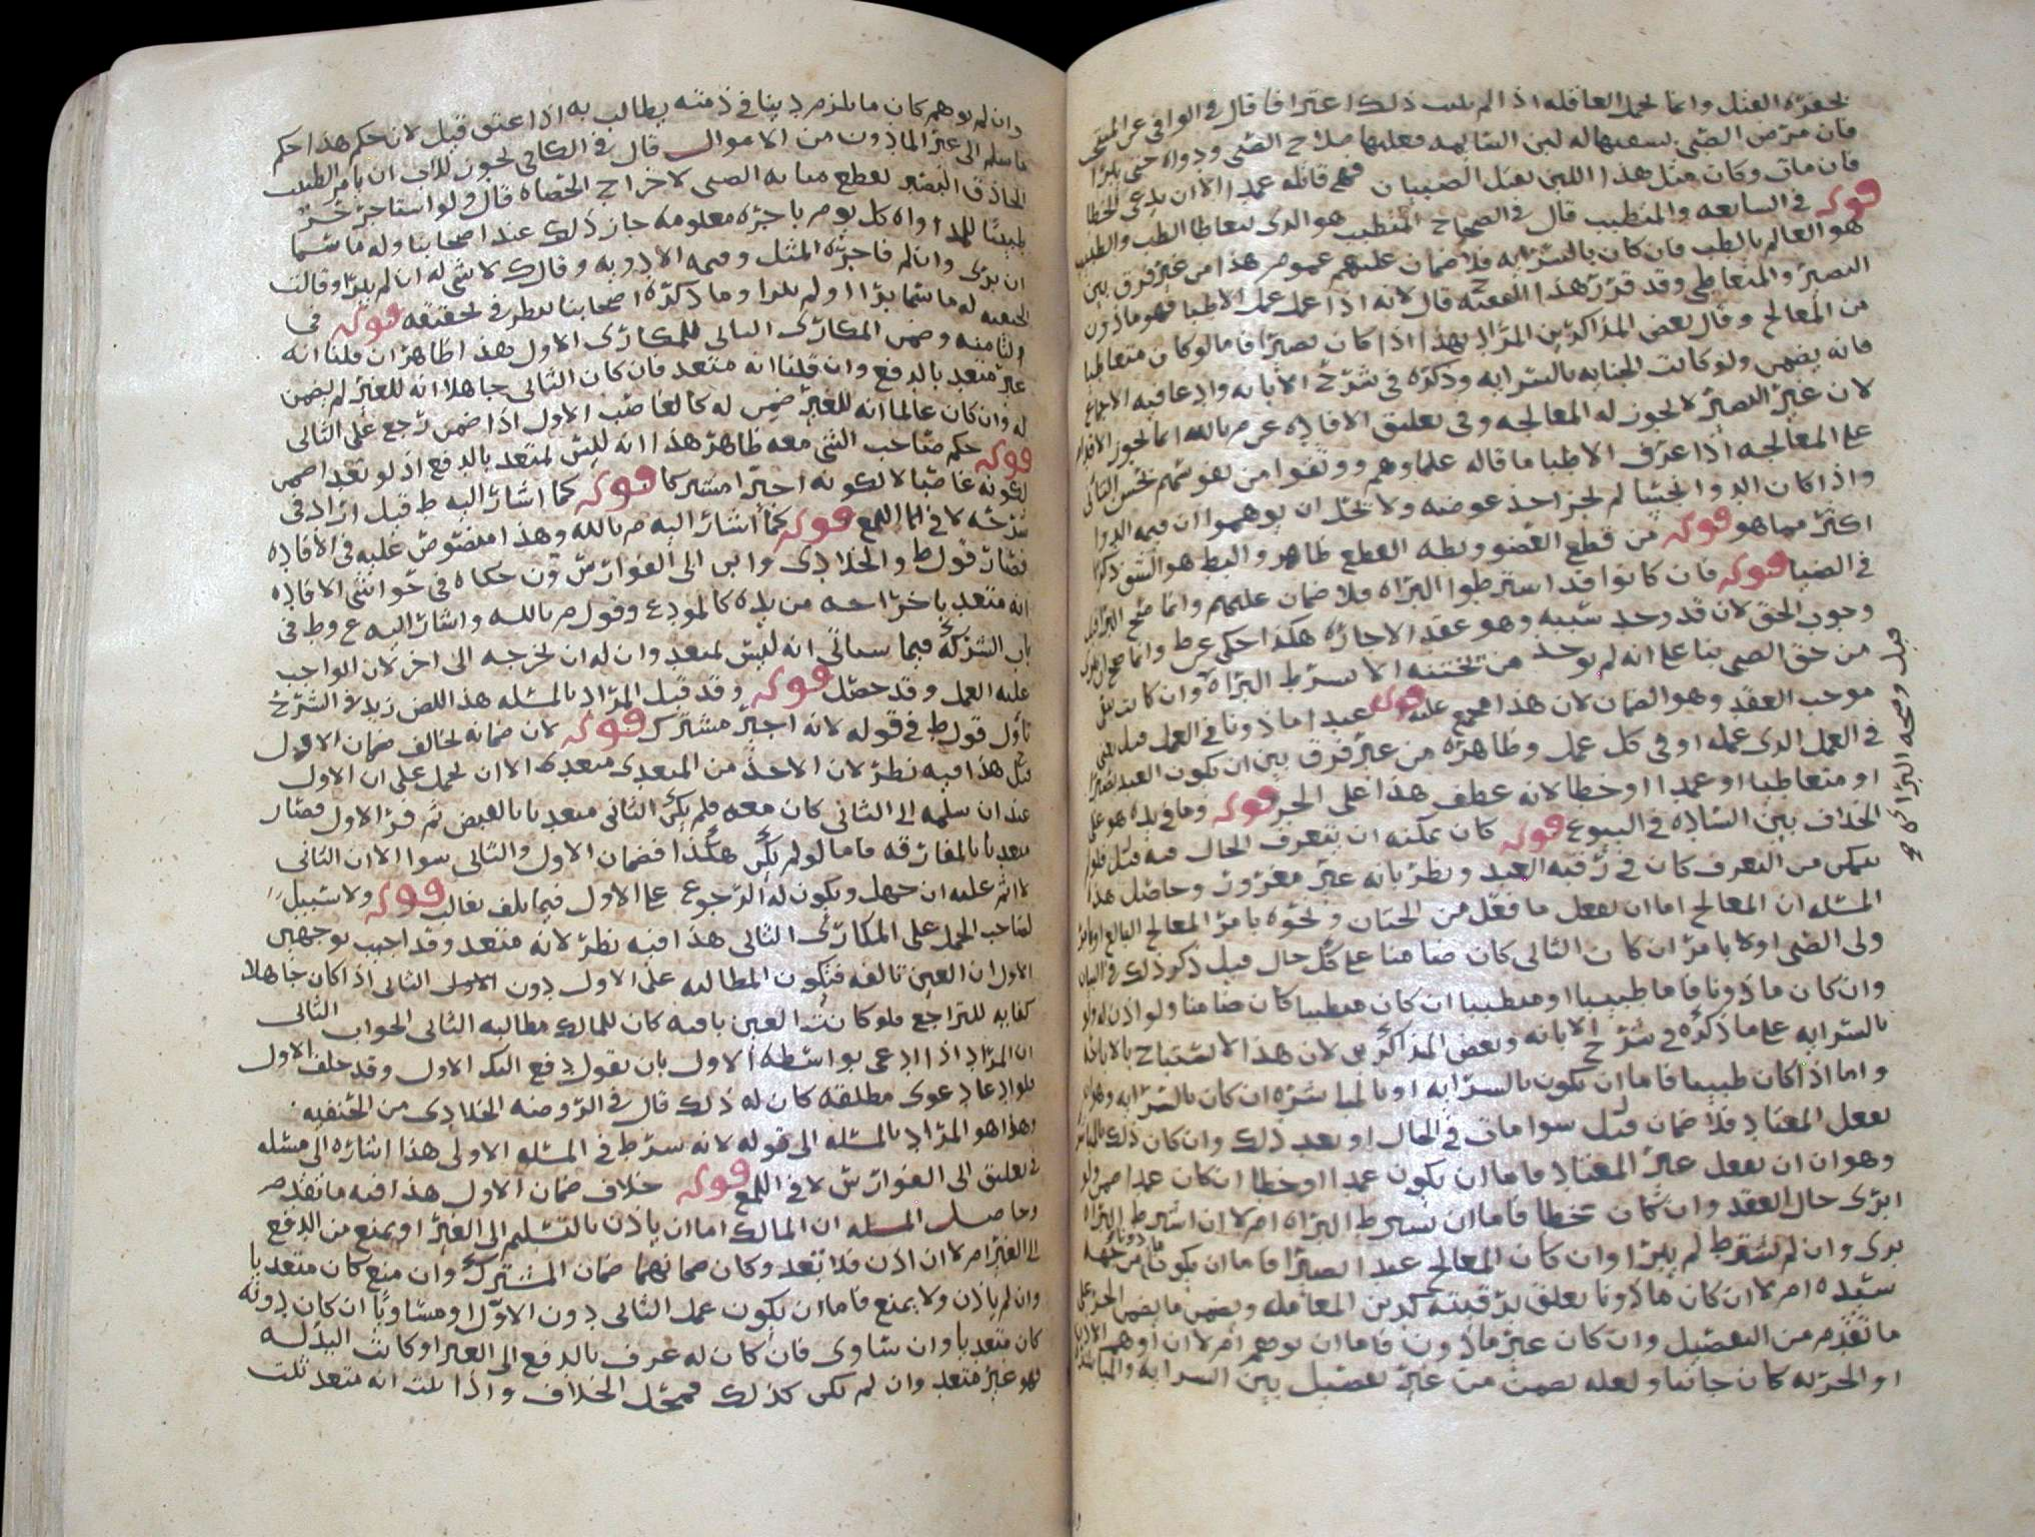 لحفرة القتل وانما تحمل العاقله اذا لم يثبت ذلك اعترافا قال في الوافي عن المنتخب
فان مرض الصبي بسقيها له لبن السايمه فعليها صلاح الصبي ودواه حتى يبرا
فان مات وكان مثل هذا اللبن يقتل الصبيان فهي قاتله عمدا الا ان يدعى الخطا
قوله في السابعه والمتطبب قال في الصحاح المتطبب هو الذي يتعاطا الطب والطبيب
هو العالم بالطب فان كان بالسرايه فلا ضمان عليهم عموم هذا من غير فرق بين
البصير والمتعاطي وقد قرر هذا الفقيه ح قال لانه اذا عمل عمل الاطبا فهو ماذون
من المعالج وقال بعض المذاكرين المراد بهذا اذا كان بصيرا فاما لو كان متعاطيا
فانه يضمن ولو كانت الجنايه بالسرايه وذكره في شرح الابانه وادعا فيه الاجماع
لان غير البصير لا يجوز له المعالجه وفي تعليق الافاده عن م بالله انما يجوز الاقدام
على المعالجه اذا عرف الاطبا ما قاله علماوهم ووثقوا من نفوسهم
واذا كان الدوا نجسا لم يجز اخذ عوضه ولا يحل ان يوهموا ان قيمه الدوا
اكثر مما هو قوله من قطع العضو وبطه القطع ظاهر والبط هو الشق ذكره
في الضيا قوله فان كانوا قد اشترطوا البراه فلا ضمان عليهم وانما صح البرا قبل
وجوب الحق لان قد وجد سببه وهو عقد الاجاره هكذا حكى عن ط وانما صح
من حق الصبي بنا على انه لم يوجد من يختنه الا بشرط البراه وان كانت من
موجب العقد وهو الضمان لان هذا مجمع عليه قوله عبدا ماذونا في العمل قيل يعني
في العمل الذي عمله او في كل عمل وظاهره من غير فرق بين ان يكون العبد بصيرا
او متعاطيا او عمدا او خطا لانه عطف هذا على الحر قوله وما في يده هو على
الخلاف بين الساده في البيوع قوله كان يمكنه ان يتعرف الحال فيه قيل فلو لم
يتمكن من التعرف كان في رقبه العبد ونظر بانه غير مغرور وحاصل هذه
المسئله ان المعالج اما ان يفعل ما فعل من الختان ونحوه بامر المعالج البالغ او بامر
ولي الصبي اولا بامر ان كان الثاني كان ضامنا على كل حال قيل ذكر ذلك في البيان
وان كان ماذونا فاما طبيبا او متطببا ان كان متطببا كان ضامنا ولو اذن له ولو
بالسرايه على ما ذكره في شرح الابانه وبعض المذاكرين لان هذا لا يستباح بالاباحه
واما اذا كان طبيبا فاما ان يكون بالسرايه او بالمباشره ان كان بالسرايه وهو ان
يفعل المعتاد فلا ضمان قيل سوا مات في الحال او بعد ذلك وان كان ذلك بالمباشره
وهو ان ان يفعل غير المعتاد فاما ان يكون عمدا او خطا ان كان عمدا ضمن ولو
ابري حال العقد وان كان خطا فاما ان يشرط البراه ام لا ان اشترط البراه
بري وان لم يشترط لم يبرا وان كان المعالج عبدا بصيرا فاما ان يكون ماذونا من جهة
سيده ام لا ان كان ماذونا تعلق برقبته كدين المعامله ويضمن ما يضمن الحر على
ما تقدم من التفصيل وان كان غير ماذون فاما ان يوهم ام لا ان اوهم الاذن
او الحريه كان جانيا ولعله يضمن من غير تفصيل بين السرايه والمباشره
قيل وصحه البرا
وان لم يوهم كان ما يلزم دينا في ذمته يطالب به اذا عتق قيل لان حكم هذا حكم
ما سلم الى غير الماذون من الاموال قال في الكافي يجوز للاب ان يامر الطبيب
الحاذق البصير بقطع مثانه الصبي لاخراج الحصاه قال ولو استاجر حر
طبيبا للمداواه كل يوم باجره معلومه جاز ذلك عند اصحابنا وله ما شما
ان بري وان لم فاجره المثل وقيمه الادويه وقال ك لا شي له ان لم يبرا وقالت
الحنفيه له ما شما برا او لم يبرا وما ذكره اصحابنا ينظر في تحقيقه قوله في
الثامنه وضمن المكاري الثاني للمكاري الاول هذا ظاهر ان قلنا انه
غير متعد بالدفع وان قلنا انه متعد فان كان الثاني جاهلا انه للغير لم يضمن
له وان كان عالما انه للغير ضمن له كالغاصب الاول اذا ضمن رجع على الثاني
قوله حكم صاحب الشي معه ظاهر هذا انه ليس لمتعد بالدفع اذ لو تعد ضمن
لكونه غاصبا لا لكونه اجيرا مشتركا قوله كما اشار اليه ط قيل اراد في
شرحه لا في اللمع قوله كما اشار اليه م بالله وهذا منصوص عليه في الافاده
فصار قول ط والخلادي وابن ابي الفوارس ون حكاه في حواشي الافاده
انه متعد باخراجه من يده كالمودع وقول م بالله واشار اليه ع وط في
باب الشركه فيما سياتي انه ليس لمتعد وان له ان يخرجه الى اخر لان الواجب
عليه العمل وقد حصل قوله وقد قيل المراد بالمسئله هذا اللفظ زيد في الشرح
تاول قول ط في قوله لانه اجير مشترك قوله لان ضمانه يخالف ضمان الاول
قيل هذا فيه نظر لان الاخذ من المتعدي متعدي الا ان يحمل على ان الاول
عند ان سلمه الى الثاني كان معه فلم يكن الثاني متعديا بالقبض ثم فر الاول فصار
متعديا بالمفارقه فاما لو لم يكن هكذا فضمان الاول والثاني سوا الا ان الثاني
لا اثم عليه ان جهل ويكون له الرجوع على الاول فيما تلف بغالب قوله ولا سبيل
لصاحب الحمل على المكاري الثاني هذا فيه نظر لانه متعد وقد اجيب بوجهين
الاول ان العين تالفه فتكون المطالبه على الاول دون الثاني اذا كان جاهلا
كفايه للتراجع فلو كانت العين باقيه كان للمالك مطالبه الثاني الجواب الثاني
ان المراد اذا ادعى بواسطه الاول بان يقول دفع اليك الاول وقد حلف الاول
فلو ادعا دعوى مطلقه كان له ذلك قال في الروضه الخلادي من الحنفيه
وهذا هو المراد بالمسئله الى قوله لانه شرط في المسئله الاولى هذا اشاره الى مسئله
في تعليق ابي الفوارس لا في اللمع قوله خلاف ضمان الاول هذا فيه ما تقدم
وحاصل المسله ان المالك اما ان ياذن بالتسليم الى الغير او يمنع من الدفع
الى الغير ام لا ان اذن فلا تعد وكان ضمانهما ضمان المشترك وان منع كان متعديا
وان لم ياذن ولا يمنع فاما ان يكون عمل الثاني دون الاول او مساويا ان كان دونه
كان متعديا وان ساوى فان كان له عرف بالدفع الى الغير او كانت البذله
فهو غير متعد وان لم يكن كذلك فمحل الخلاف واذا ثبت انه متعد ثبت